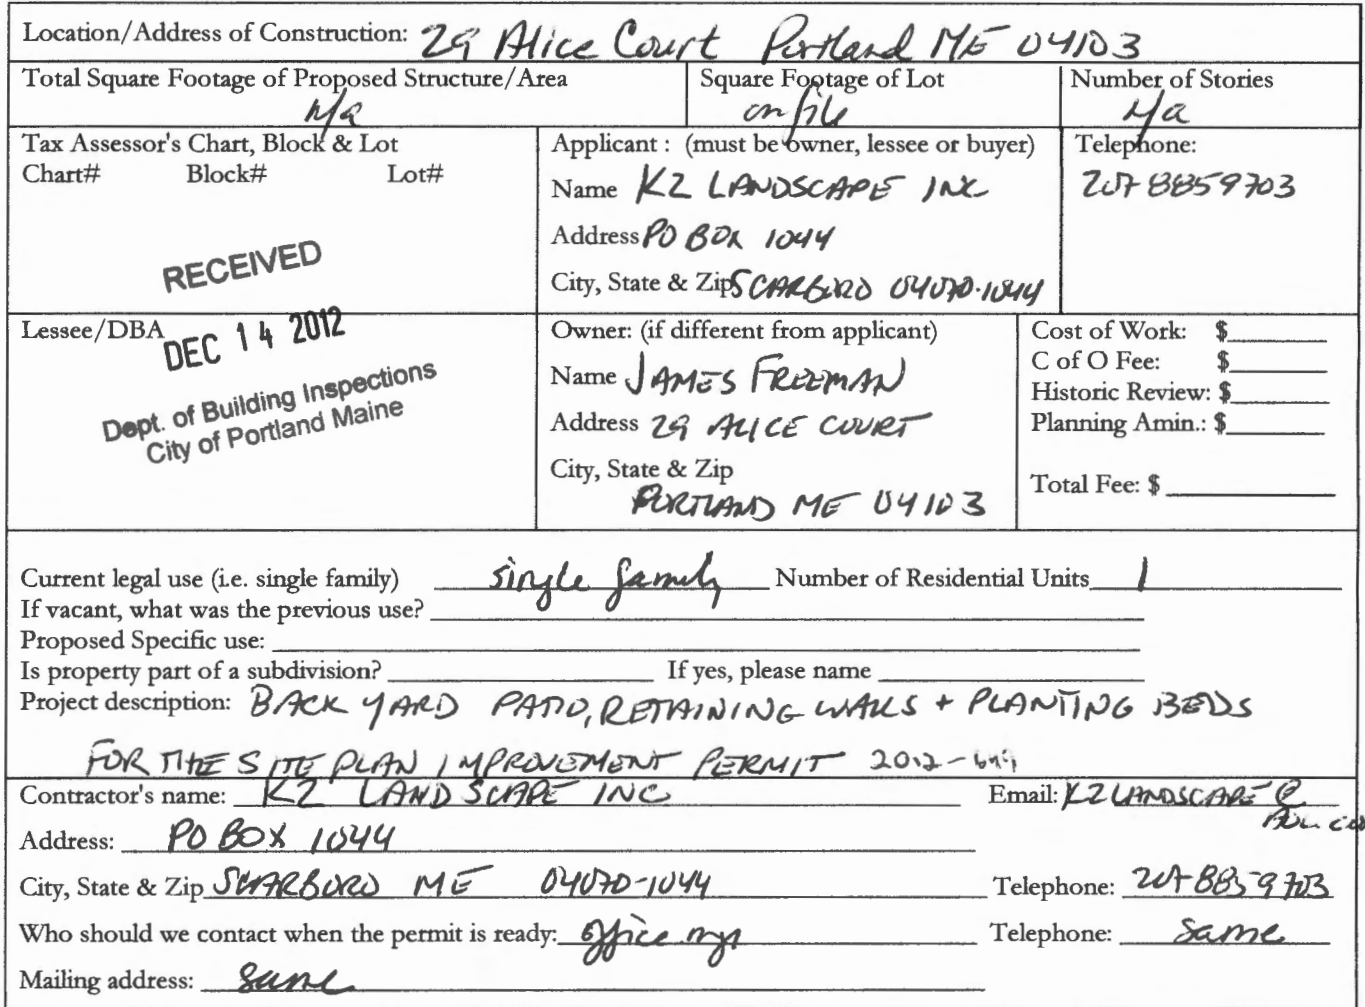 Location/Address of Construction: 29 Alice Court Portland ME 04103
Total Square Footage of Proposed Structure/Area
N/a
Square Footage of Lot
on file
Number of Stories
N/a
Tax Assessor's Chart, Block & Lot
Chart# Block# Lot#
RECEIVED
Applicant : (must be owner, lessee or buyer)
Name K2 LANDSCAPE INC
Address PO BOX 1044
City, State & Zip SCARBORO 04070-1044
Telephone:
207 8859703
Lessee/DBA
DEC 14 2012
Dept. of Building Inspections
City of Portland Maine
Owner: (if different from applicant)
Name JAMES FREEMAN
Address 29 ALICE COURT
City, State & Zip
PORTLAND ME 04103
Cost of Work: $
C of O Fee: $
Historic Review: $
Planning Amin.: $
Total Fee: $
Current legal use (i.e. single family) single family Number of Residential Units 1
If vacant, what was the previous use?
Proposed Specific use:
Is property part of a subdivision? If yes, please name
Project description: BACK YARD PATIO, RETAINING WALLS + PLANTING BEDS
FOR THE SITE PLAN IMPROVEMENT PERMIT 2012-
Contractor's name: K2 LANDSCAPE INC Email: K2LANDSCAPE@
AOL.COM
Address: PO BOX 1044
City, State & Zip SCARBORO ME 04070-1044 Telephone: 207 8859703
Who should we contact when the permit is ready: office mgr Telephone: Same
Mailing address: Same